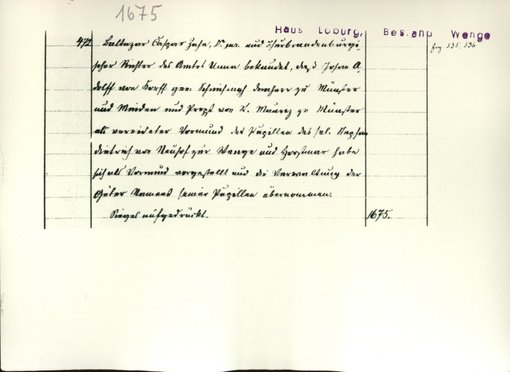 1675
Haus Loburg, Bestand Wenge
frg 535, 536
472 Baltazar Caspar Zahn, Dr. jur. und churbrandenburgi-
scher Richter des Amtes Unna bekundet, daß Johan A-
dolff von Torff gen. domherr zu Münster
und Minden und Propst von St. Mauritz zu Münster
als vereideter Vormund der Pupillen des sel. Stephan
dietrich von Neuhof zur Wenge und Horstmar habe
sich als Vormund vorgestellt und die Verwaltung der
Güter Namens seiner Pupillen übernommen.
Siegel aufgedrückt. 1675.